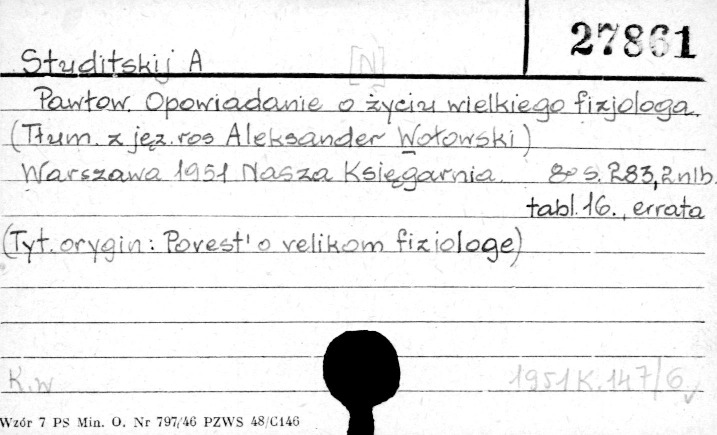 27861
Studitskij A [N]
Pawłow. Opowiadanie o życiu wielkiego fizjologa.
(Tłum. z jęz. ros Aleksander Wołowski)
Warszawa 1951 Nasza Księgarnia. 8° s. 283, 2 nlb.
tabl. 16., errata
(Tyt. orygin: Povest' o velikom fiziologe)
K.w 1951 K. 147/6
Wzór 7 PS Min. O. Nr 797/46 PZWS 48/C146